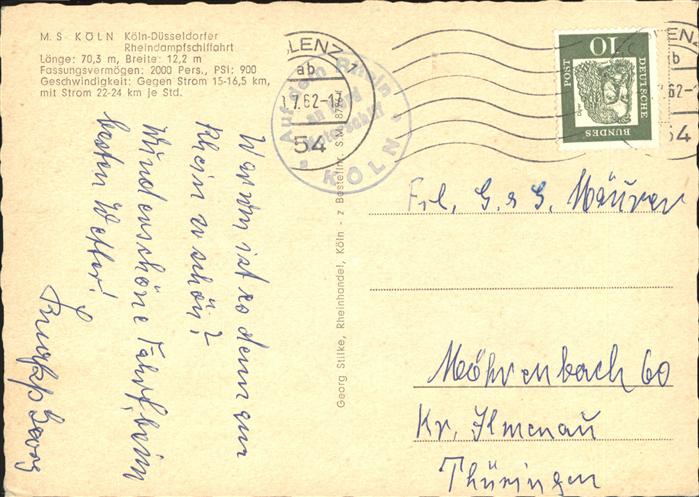 M. S. KÖLN Köln-Düsseldorfer
Rheindampfschiffahrt
Länge: 70,3 m, Breite: 12,2 m
Fassungsvermögen: 2000 Pers., PSi: 900
Geschwindigkeit: Gegen Strom 15-16,5 km,
mit Strom 22-24 km je Std.
Warum ist es denn am
Rhein so schön?
Wunderschöne Fahrt, beim
besten Wetter!
Georg
Georg Stilke, Rheinhandel, Köln - z Bostelink. S.M.
LENZ 1
ab
.7.62-17
54
Auf dem Rhein
an Bord
Motorschiff
KÖLN
10
DEUTSCHE
BUNDES
POST
Frl. G. & G. Mäurer
Möhrenbach 60
Kr. Ilmenau
Thüringen